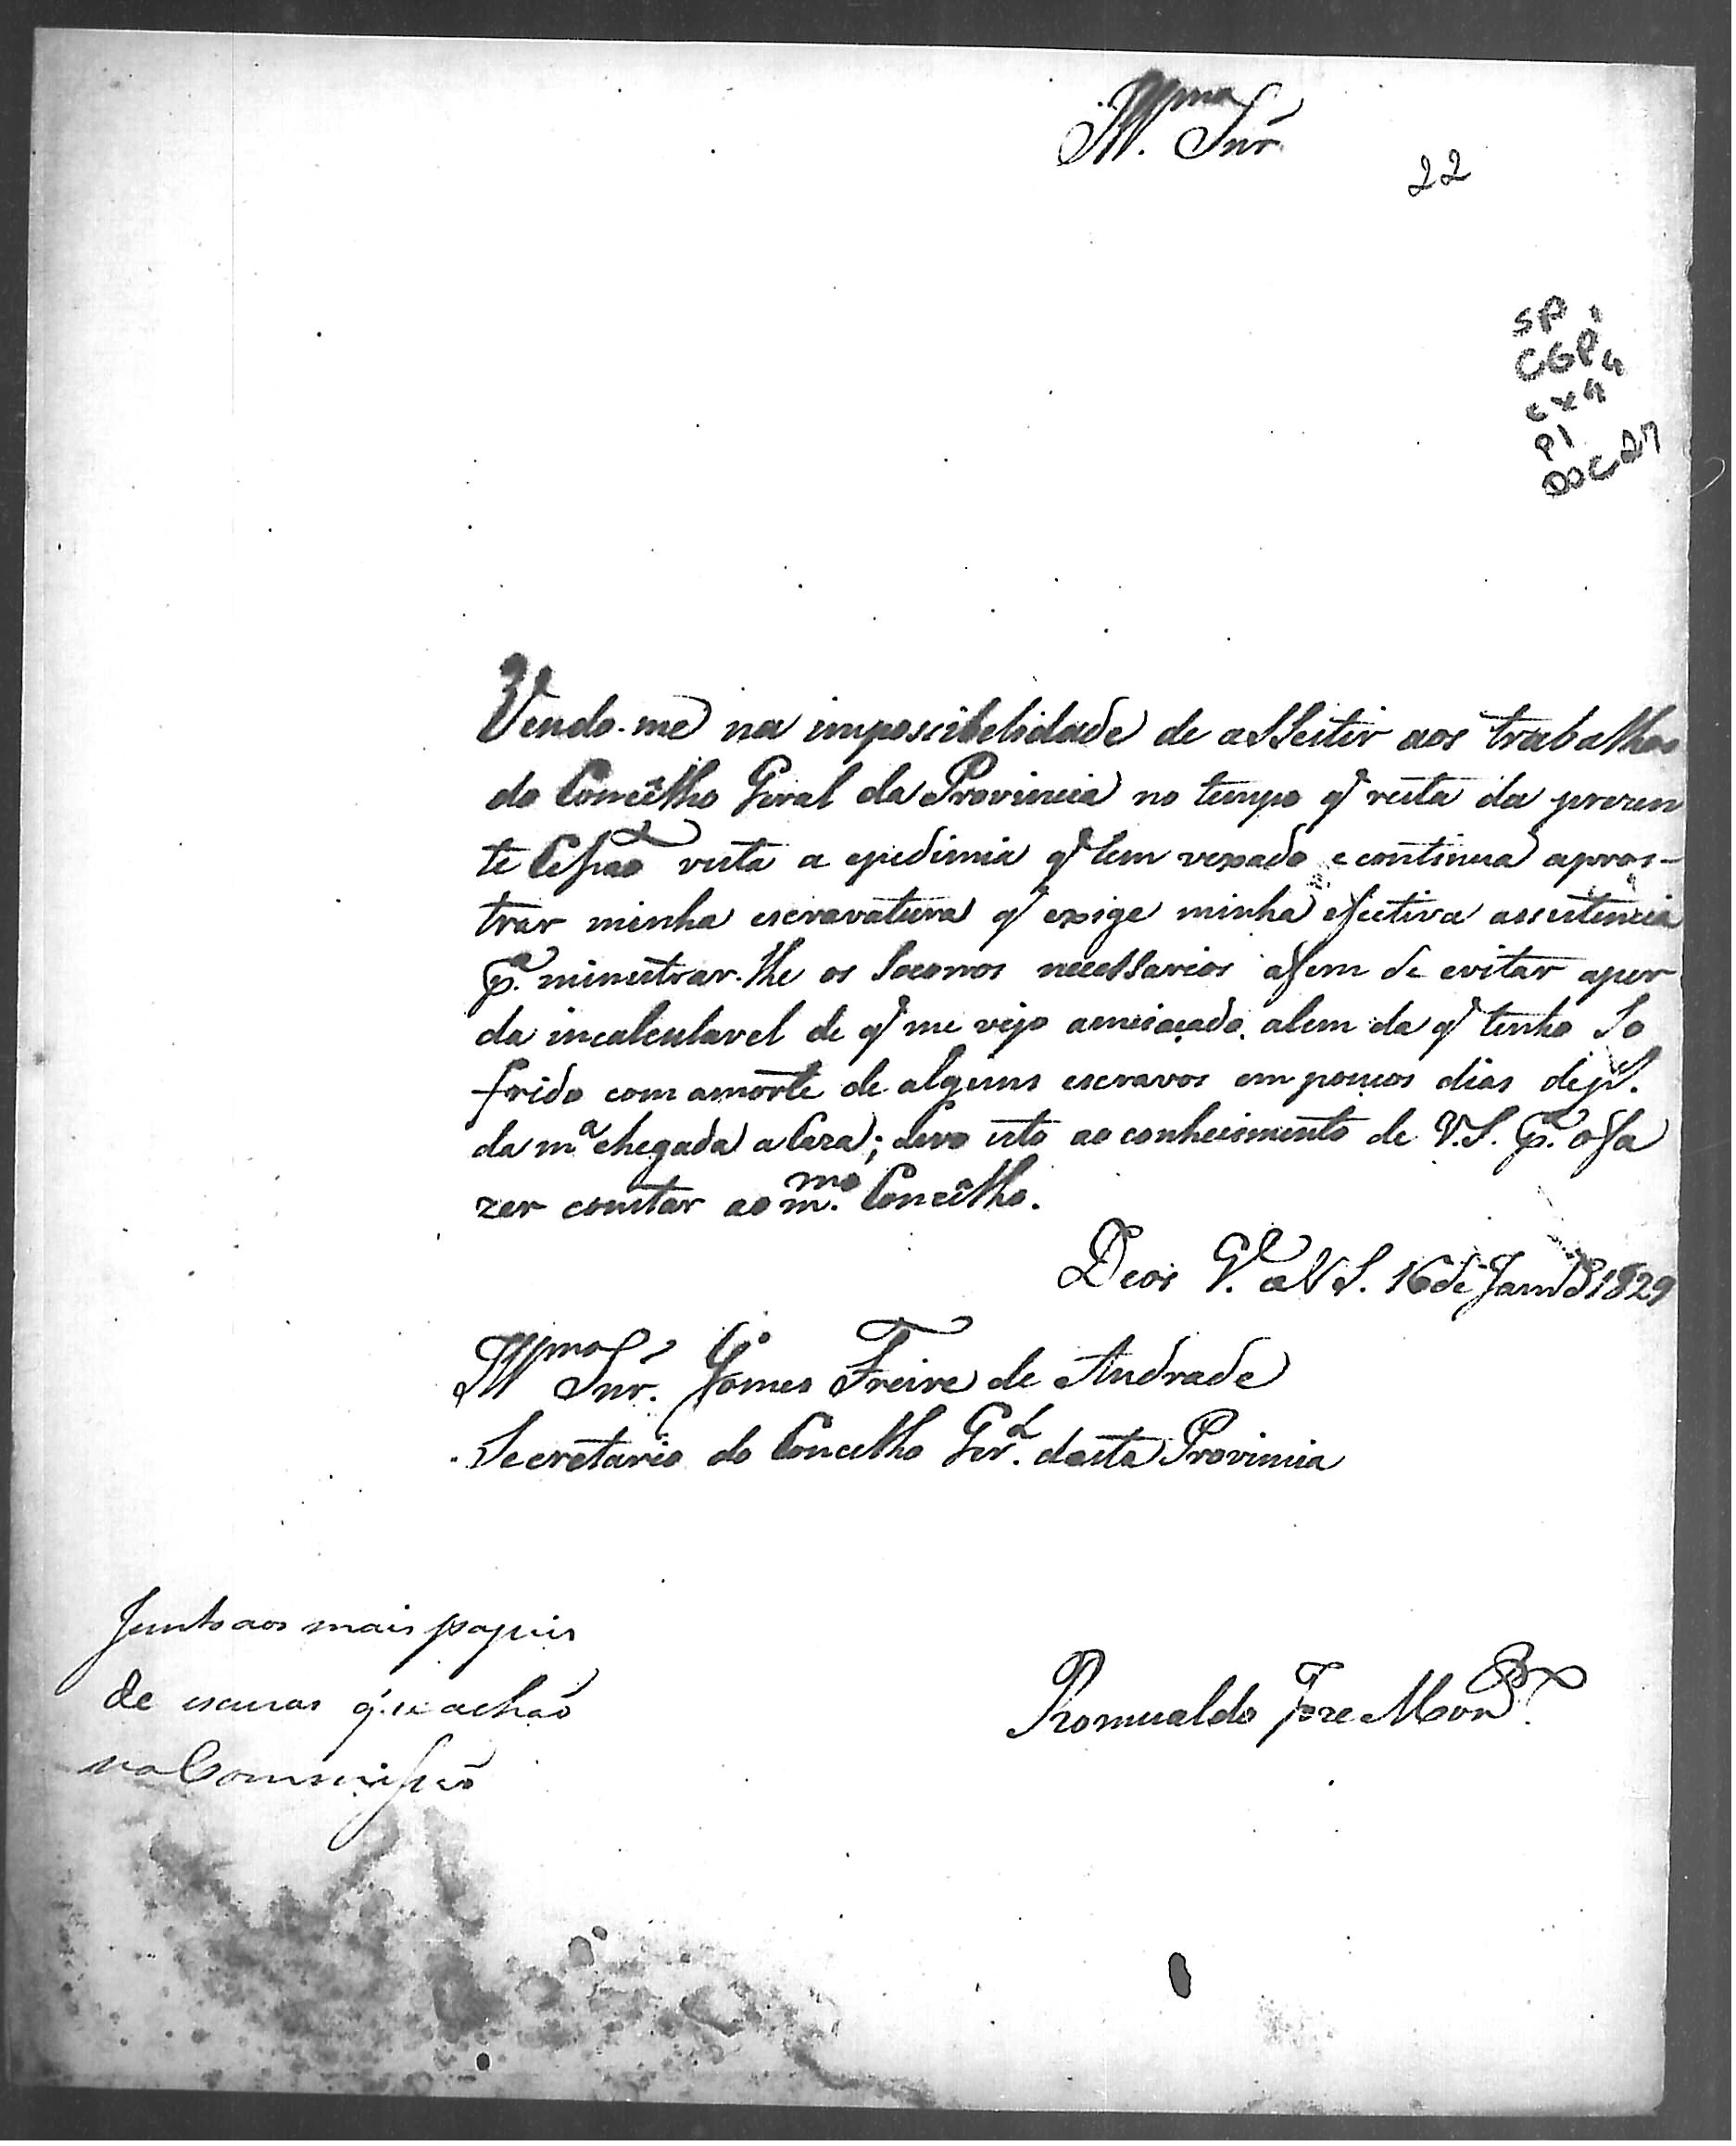 Ill.mo Snr.
22
SP
CGP 4
cx 4
P1
DOC 27
Vendo-me na imposcibelidade de assestir aos trabalhos
do Concêlho Geral da Provincia no tempo q' resta da prezen
te Cessaõ vista a epedimia q' tem vexado e continua apros-
trar minha escravatura q' exige minha efectiva assistencia
p.a ministrar-lhe os Socorros necessarios afem de evitar aper
da incalculavel de q' me vejo ameiaçado, alem da q' tenho So
frido com amorte de alguns escravos em poucos dias dep.s
da m.a chegada a Caza; Levo isto ao conhecimento de V.S. p.a ofa
zer constar ao m.mo Concêlho.
Deos G.e a V.S. 16 de Janr.o 1829
Ill.mo Snr. Gomes Freire de Andrade
Secretario do Concelho Ger.l desta Provincia
Junto aos mais papeis
de escuzas q' se achaõ
na Commissaõ
Romualdo Joze Mon.ro